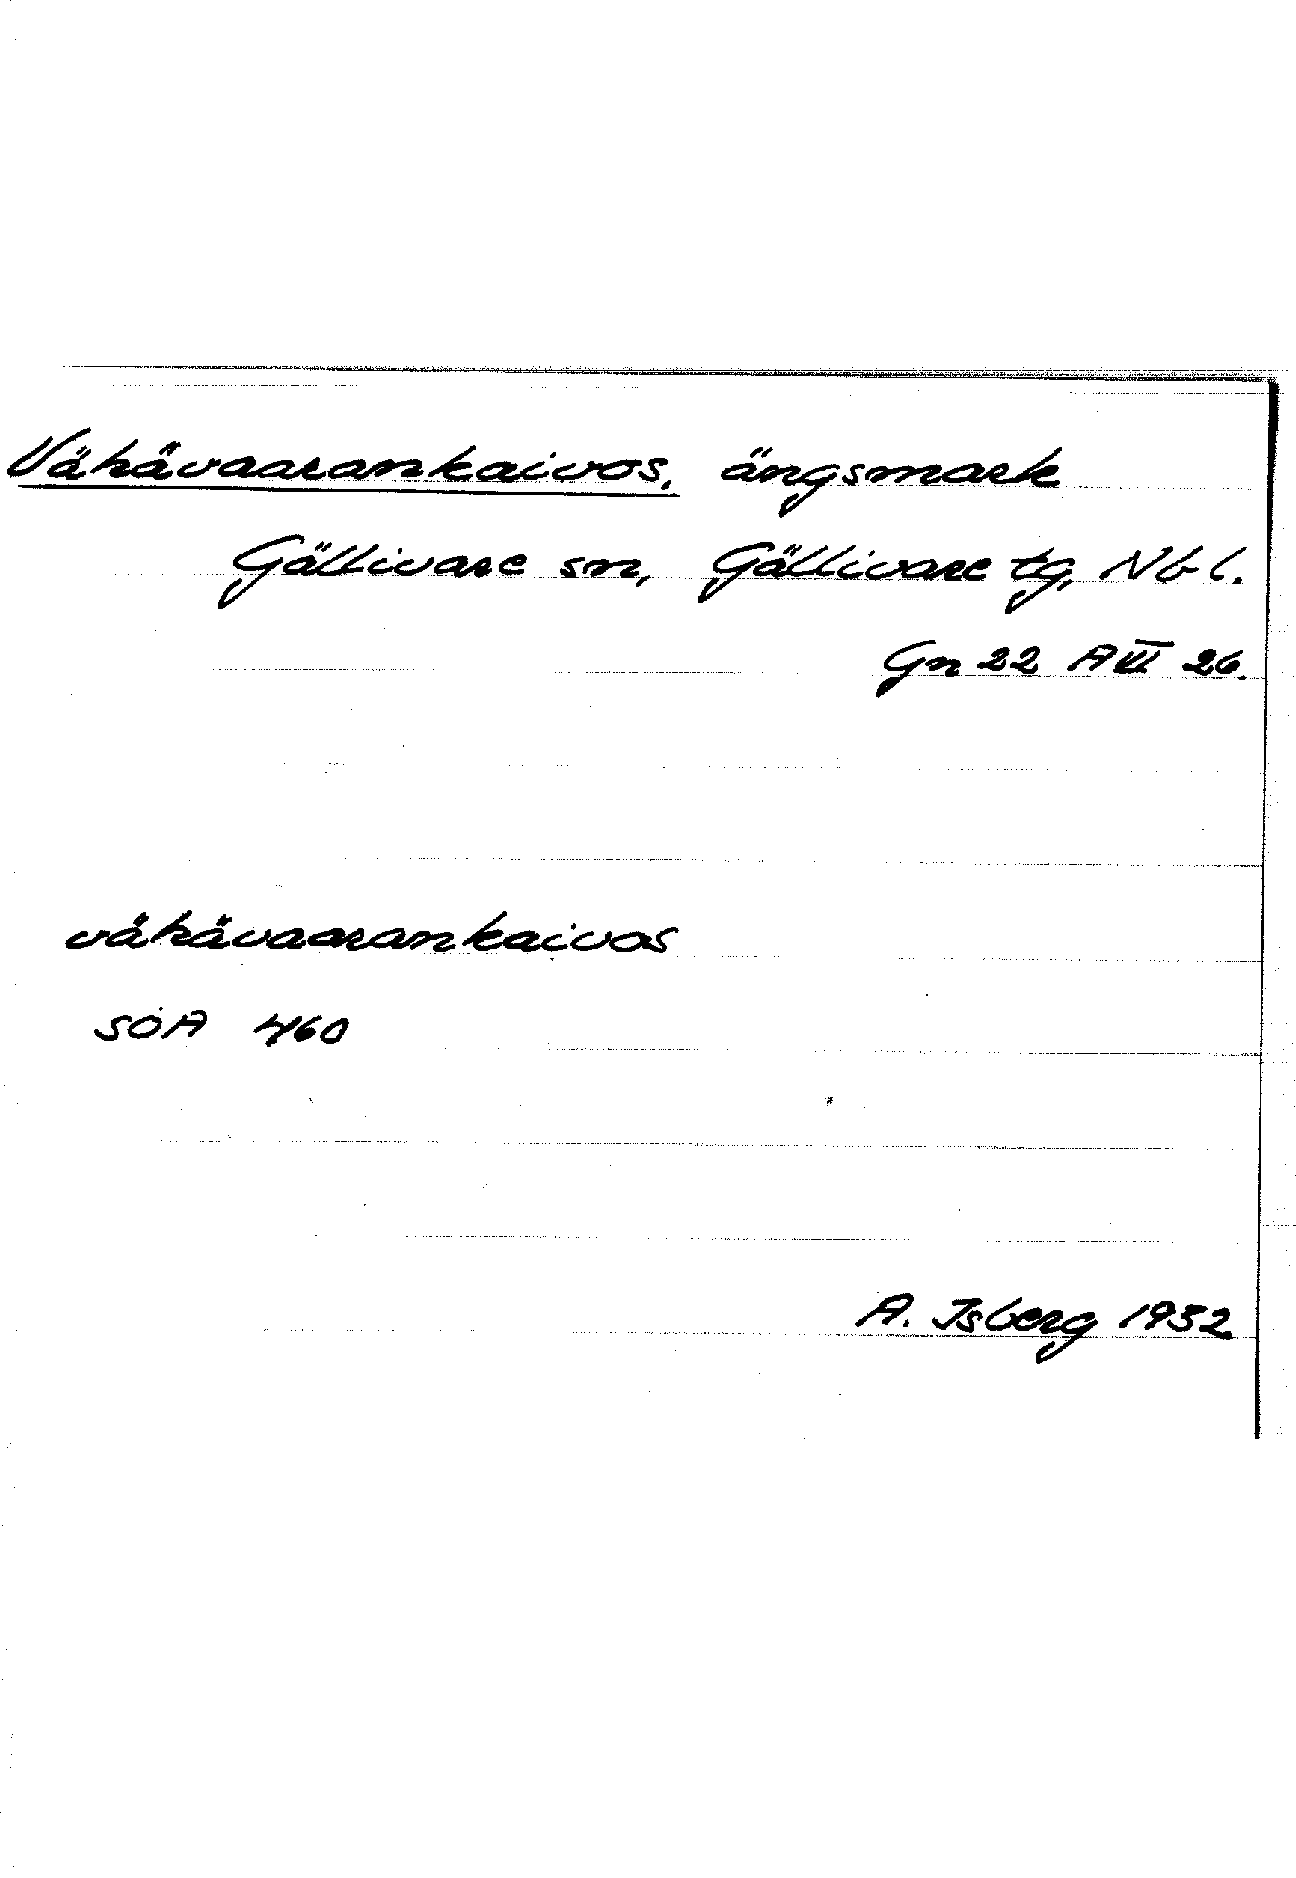 Vähävaarankaivos, ängsmark
Gällivare sn, Gällivare tg, Nb l.
Gn 22 A III 26.
vähävaarankaivos
SOA 460
A. Isberg 1932